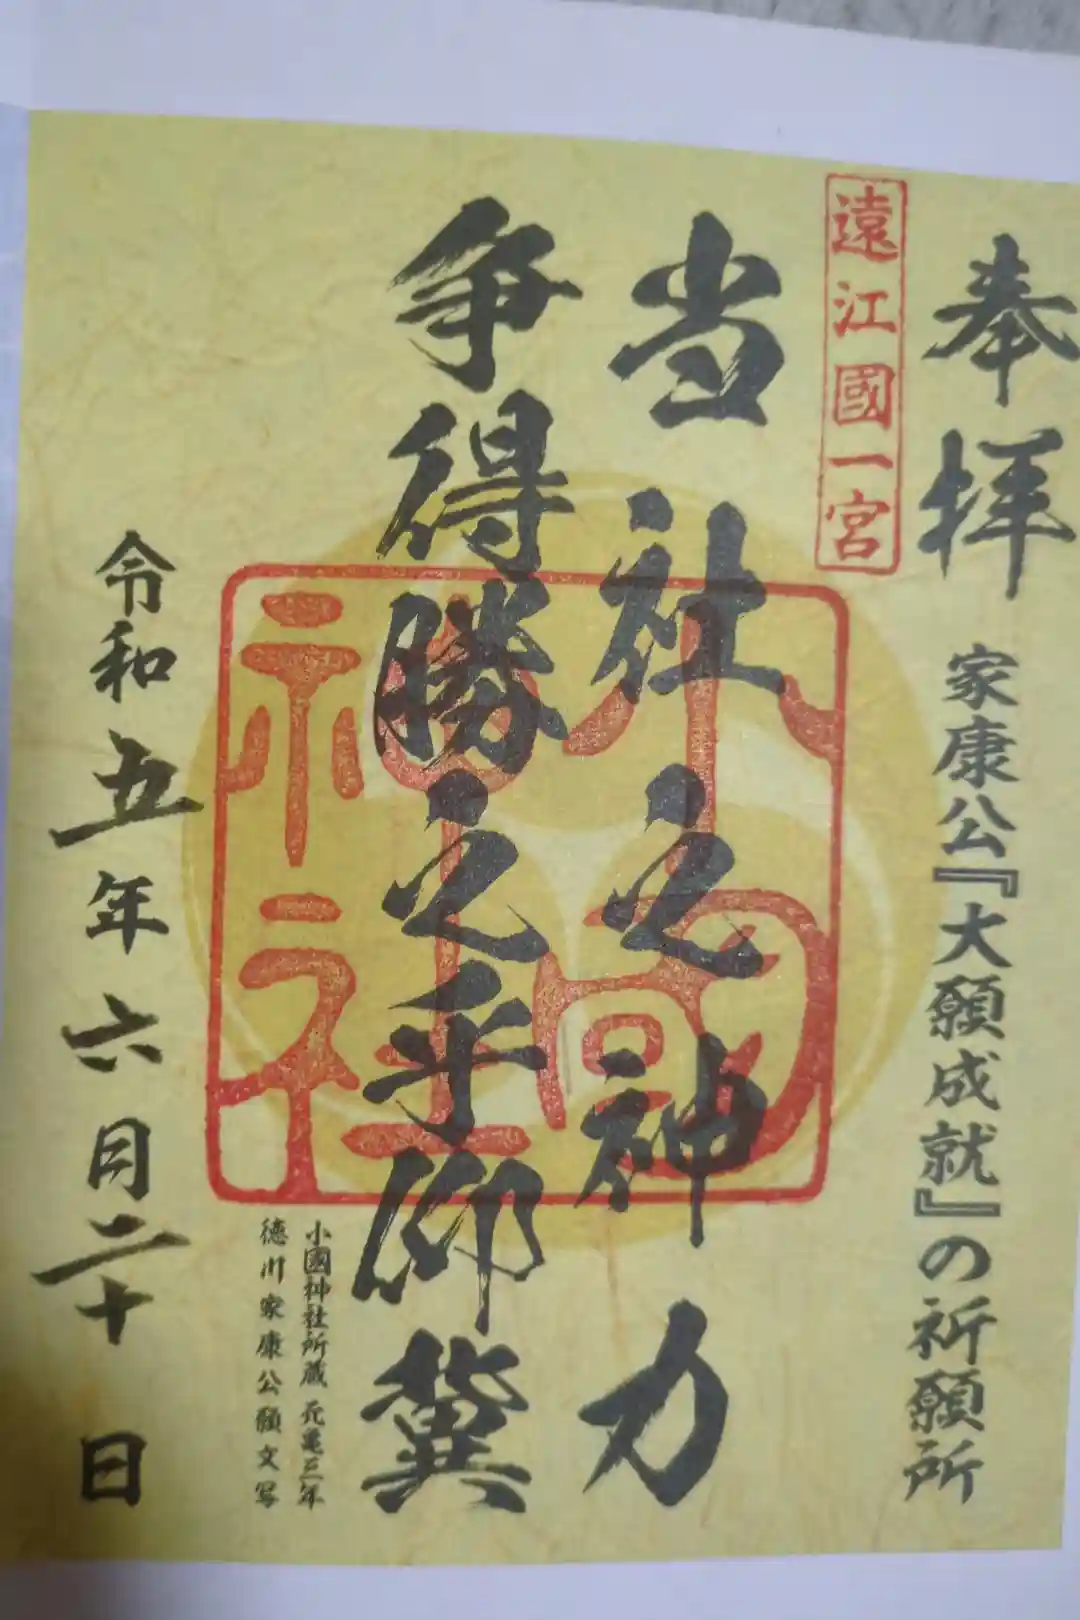 奉拝
家康公『大願成就』の祈願所
遠江國一宮
当社之神力
争得勝之乎仰冀
小國神社
小國神社所蔵 元亀三年
徳川家康公願文写
令和五年六月二十日